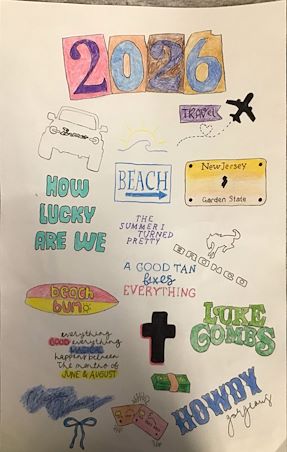 2026
TRAVEL
Bronco
New Jersey
Garden State
BEACH
HOW
LUCKY
ARE WE
THE
SUMMER I
TURNED
PRETTY
BRONCO
A GOOD TAN
fixes
EVERYTHING
beach
bum
LUKE
COMBS
everything
GOOD everything
MAGICAL
happens between
The months of
JUNE & AUGUST
HOWDY
gorgeous